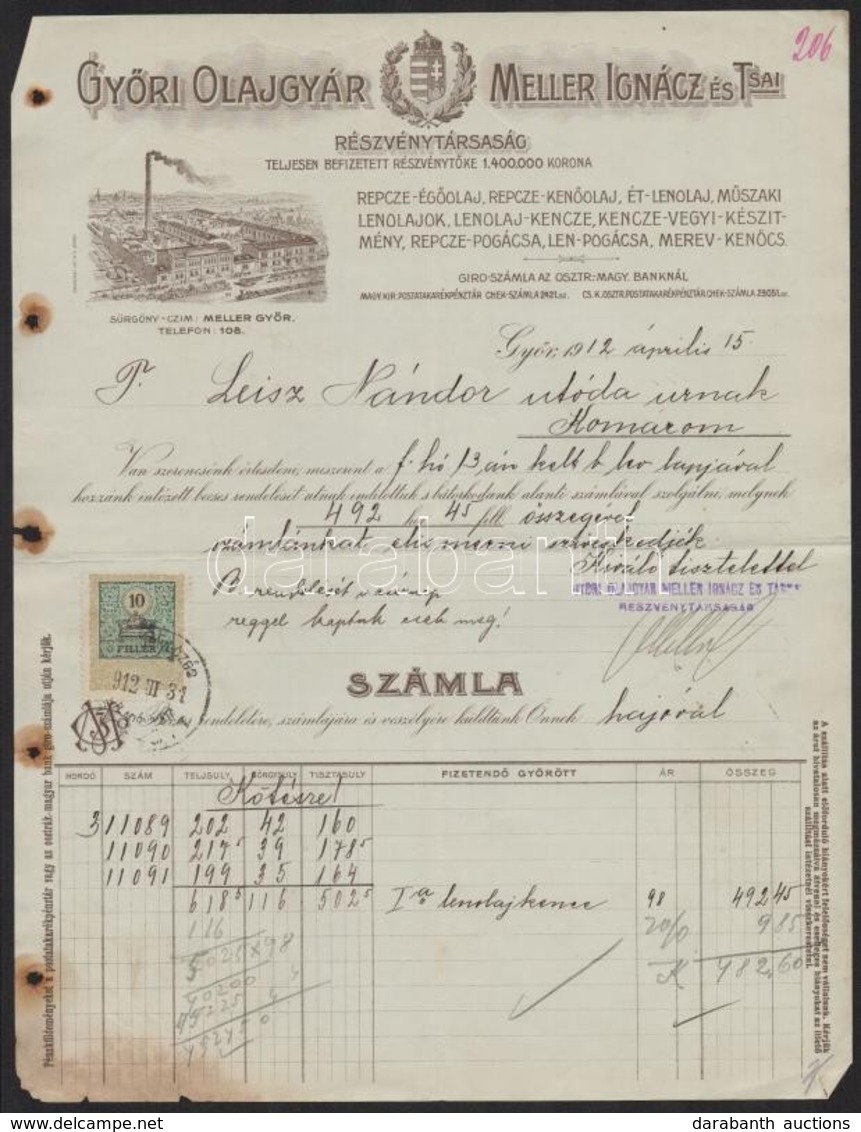 206
GYŐRI OLAJGYÁR MELLER IGNÁCZ ÉS TSAI
RÉSZVÉNYTÁRSASÁG
TELJESEN BEFIZETETT RÉSZVÉNYTŐKE 1.400.000 KORONA
REPCZE-ÉGŐOLAJ, REPCZE-KENŐOLAJ, ÉT-LENOLAJ, MŰSZAKI
LENOLAJOK, LENOLAJ-KENCZE, KENCZE-VEGYI-KÉSZIT-
MÉNY, REPCZE-POGÁCSA, LEN-POGÁCSA, MEREV-KENŐCS.
GIRO-SZÁMLA AZ OSZTR.-MAGY. BANKNÁL
MAGY. KIR. POSTATAKARÉKPÉNZTÁR CHEK-SZÁMLA 2421. SZ. CS. K. OSZTR. POSTATAKARÉKPÉNZTÁR CHEK-SZÁMLA
SÜRGÖNY-CZIM: MELLER GYŐR.
TELEFON: 108.
Győr, 1912 április 15.
T. Leisz Nándor utóda urnak
Komárom
Van szerencsénk értesiteni, miszerint a f. hó 13 án kelt b. lev lapjával
hozzánk intézett becses rendelését utnak inditottuk s bátorkodunk alanti számlával szolgálni, melynek
492 kor 45 fill. összegével
számlánkat elismerni sziveskedjék
Kiváló tisztelettel
GYŐRI OLAJGYÁR MELLER IGNÁCZ ÉS TÁRSAI
RÉSZVÉNYTÁRSASÁG
B. rendelését
reggel kaptuk csak meg!
10
FILLÉR
912 III 31
SZÁMLA
rendeletére, számlájára és veszélyére küldtünk Önnek hajóval
HORDÓ SZÁM TELJSULY GÖNGYSULY TISZTASULY FIZETENDŐ GYŐRÖTT ÁR ÖSSZEG
Kötésre!
3 11089 202 42 160
11090 217 5 39 178 5
11091 199 35 164
618 5 116 502 5 Ia lenolajkence 98 492 45
116 2% 9 85
5025x98 K 482.60
40200
45225
492450
Pénzküldeményeket a postatakarékpénztár vagy az osztrák-magyar bank giro-számlája utján kérjük.
A szállitás alatt előforduló hiányokért felelősséget nem vállalunk. Kérjük
az árut hivatalosan megmázsálva átvenni és esetleges hiányokat az illető
szállitási intézetnél visszkeresetelni.
darabanth
www.delcampe.net
darabanth auctions